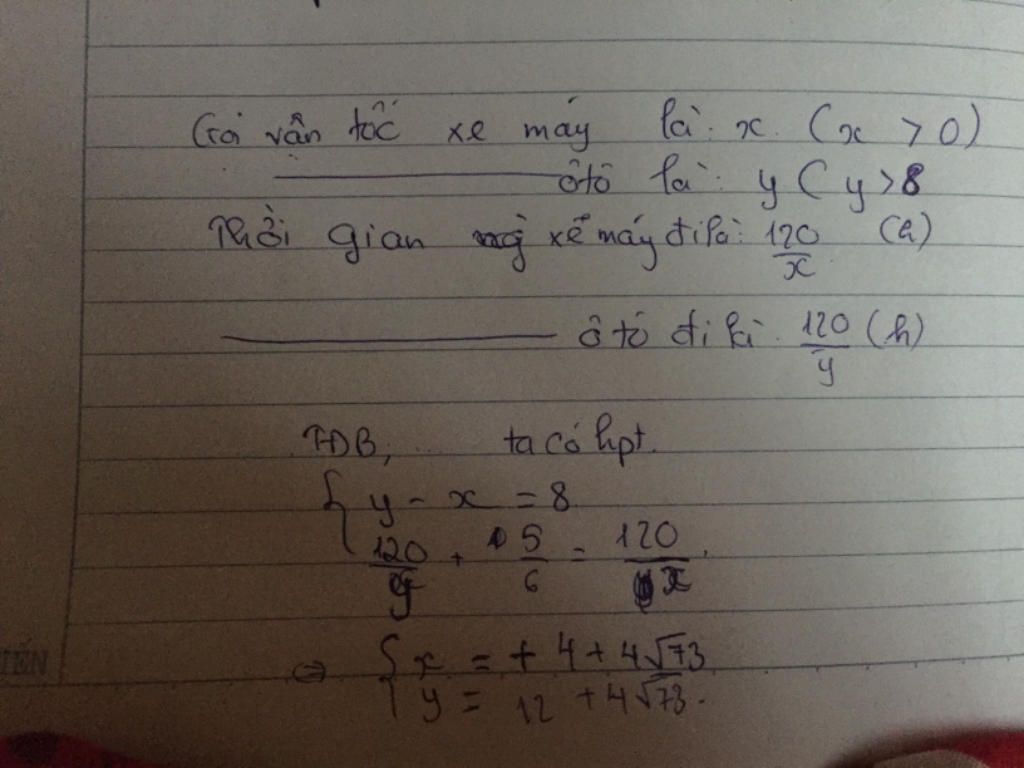 Gọi vận tốc xe máy là: x (x > 0)
ôtô là: y (y > 8
Thời gian xe máy đi là: 120/x (h)
ô tô đi là: 120/y (h)
TĐB, ... ta có hpt.
{ y - x = 8
120/y + 5/6 = 120/x.
⇔ { x = + 4 + 4√73
y = 12 + 4√73.